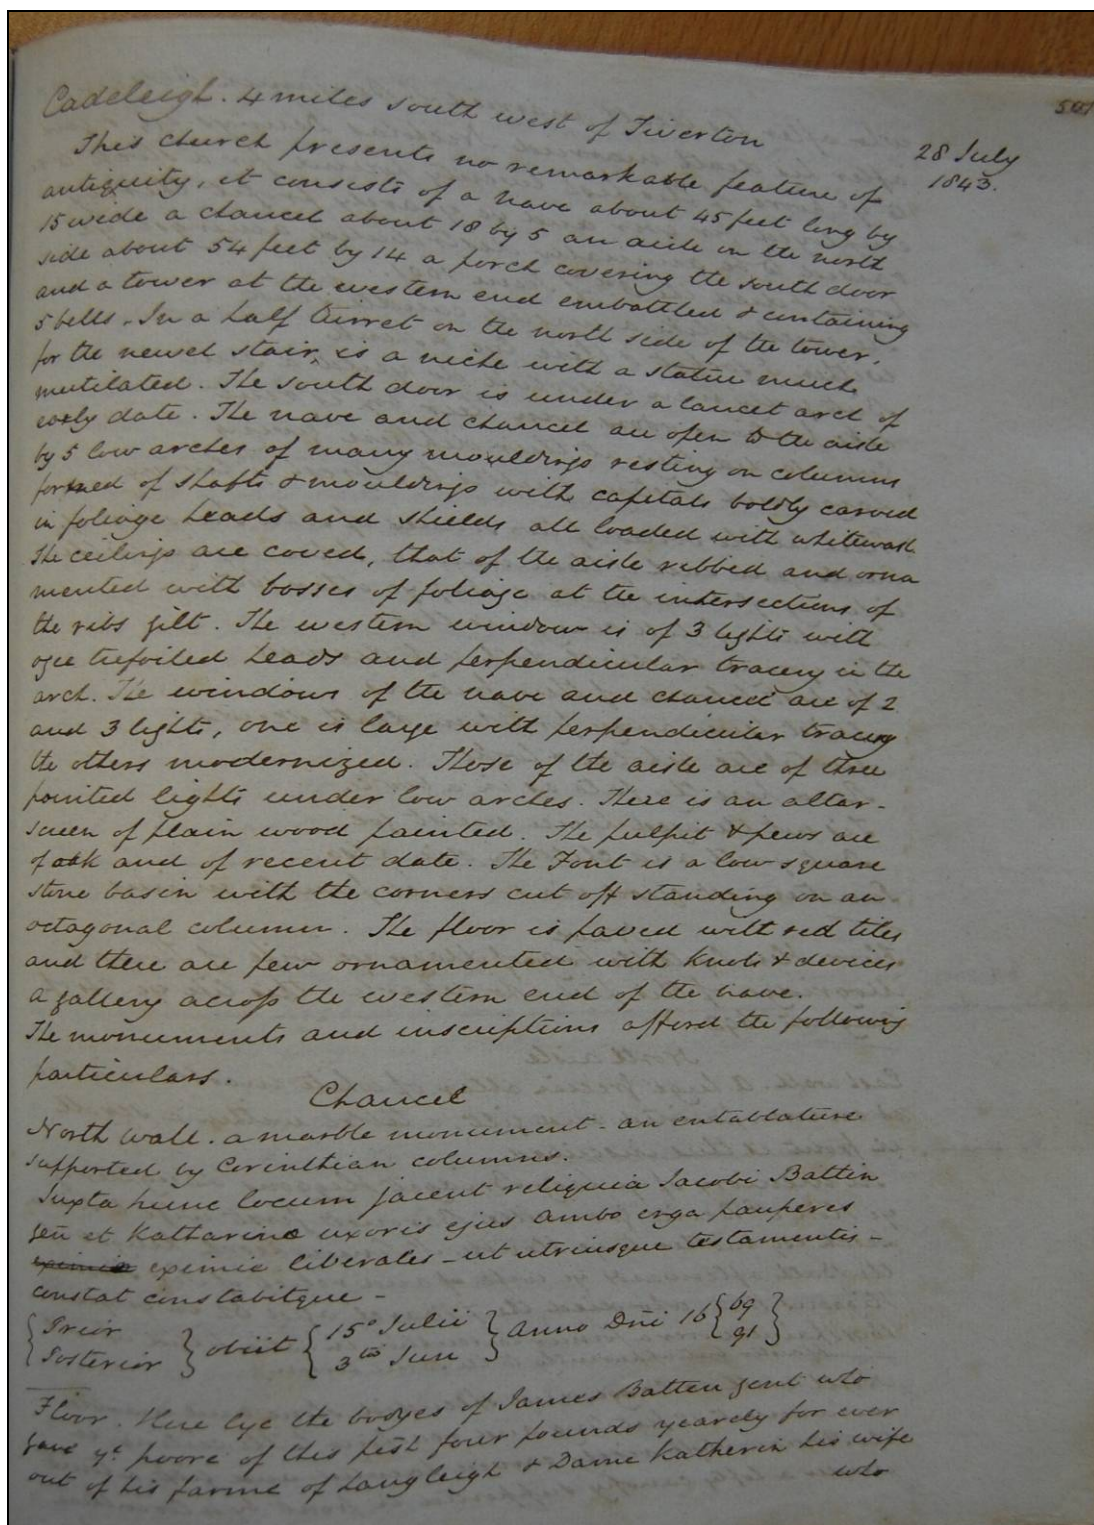 501
28 July
1843.
Cadeleigh. 4 miles south west of Tiverton
This church presents no remarkable feature of
antiquity, it consists of a nave about 45 feet long by
15 wide a chancel about 18 by 5 an aisle on the north
side about 54 feet by 14 a porch covering the south door
and a tower at the western end embattled & containing
5 bells. In a half turret on the north side of the tower,
for the newel stair, is a niche with a statue much
mutilated. The south door is under a lancet arch of
early date. The nave and chancel are open to the aisle
by 5 low arches of many mouldings resting on columns
formed of shafts & mouldings with capitals boldly carved
in foliage heads and shields all loaded with whitewash
The ceilings are coved, that of the aisle ribbed and orna
mented with bosses of foliage at the intersections of
the ribs gilt. The western window is of 3 lights with
ogee trefoiled heads and perpendicular tracery in the
arch. The windows of the nave and chancel are of 2
and 3 lights, one is large with perpendicular tracery
the others modernized. Those of the aisle are of three
pointed lights under low arches. There is an altar-
screen of plain wood painted. The pulpit & pews are
of oak and of recent date. The Font is a low square
stone basin with the corners cut off standing on an
octagonal column. The floor is paved with red tiles
and there are few ornamented with knots & devices
a gallery across the western end of the nave.
The monuments and inscriptions afford the following
particulars.
Chancel
North wall. a marble monument - an entablature
supported by Corinthian columns.
Juxta hunc locum jacent reliquia Jacobi Battin
gen et Katharinæ uxoris ejus ambo erga pauperes
eximie liberales - ut utriusque testamentis -
constat constabitque -
{Prior Posterior} obiit {15° Julii 3tio Jun} Anno Dni 16 {69 91}
Floor. Here lye the bodyes of James Batten gent who
gave ye poore of this pish four pounds yearely for ever
out of his farme of Langleigh & Dame Katherin his wife
who